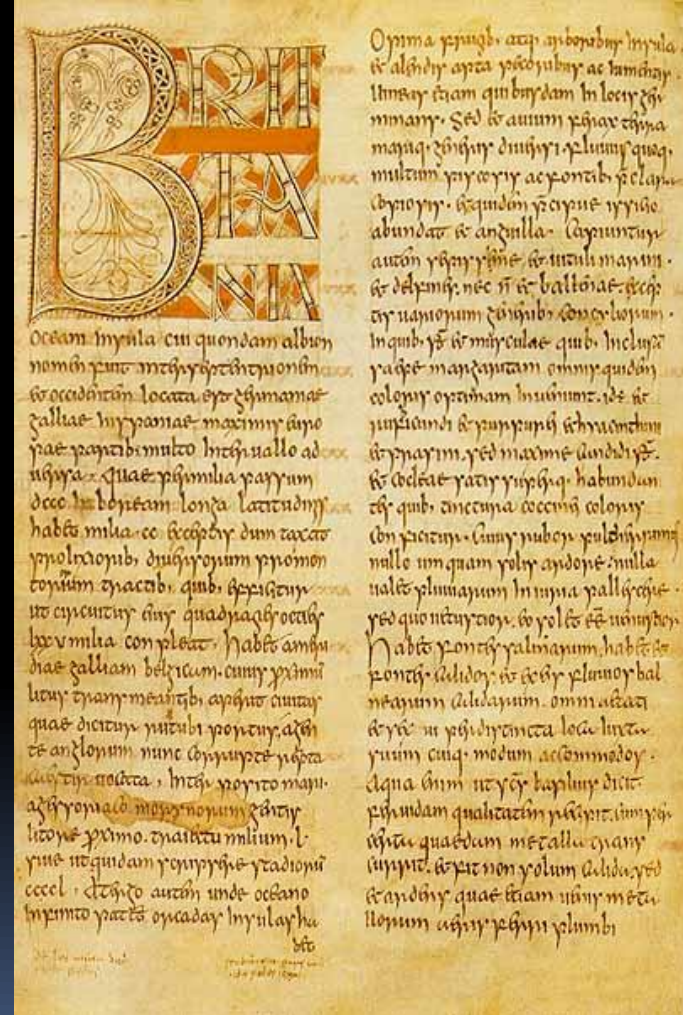 BRIT
TA
NIA
Oceani insula cui quondam albion
nomen fuit inter septentrionem
et occidentem locata est germaniae
galliae hispaniae maximis euro
pae partib; multo interuallo ad
uersa. Quae per milia passuum
dccc in boream longa latitudinis
habet milia cc exceptis dum taxat
prolixiorib; diuersorum promon
toriorum tractib; quib; efficitur
ut circuitus eius quadragies octies
lxxv milia conpleat. habet a meri
die galliam belgicam. cuius proximum
litus transmeantib; aperit ciuitas
quae dicitur rutubi portus. a gen
te anglorum nunc corrupte
uocata, Interposito mari.
a gessoriaco morynorum gentis
litore proximo. traiectu milium. l.
siue ut quidam scripsere stadiorum
ccccl. A tergo autem unde oceano
infinito patet orcadas insulas ha
bet
Opima frugib. atq; arboribus insula.
et alendis apta pecoribus ac iumentis.
uineas etiam quibusdam In locis ger
minans. Sed et auium ferax terra
mariq; generis diuersi. fluuiis quoq;
multum piscosis ac fontib; praeclara
copiosis. et quidem praecipue issicio
abundat et anguilla. Capiuntur
autem saepissime et uituli marini.
et delfines. nec non et ballenae. excep
tis uariorum generib; concyliorum.
In quib; sunt et musculae quib; Inclusam
saepe margaritam omnis quidem
coloris optimam Inueniunt. id est et
rubicundi et purpurei et hyacinthini
et prasini. sed maxime candidi sunt.
et cocleae satis superq; habundan
tes quib; tinctura coccinei coloris
conficitur. Cuius rubor pulcherrimus
nullo umquam solis ardore. nulla
ualet pluuiarum Iniuria pallescere.
sed quo uetustior. eo solet esse uenustior
habet fontes salinarum. habet et
fontes calidos et ex eis fluuios bal
nearum calidarum. omni aetati
et sexui per distincta loca Iuxta
suum cuiq; modum accommodos.
Aqua enim ut scs basilius dicit.
feruidam qualitatem recipit. cum per
certa quaedam metalla trans
currit. et fit non solum calida. sed
et ardens quae etiam uenis meta
llorum aeris ferri plumbi